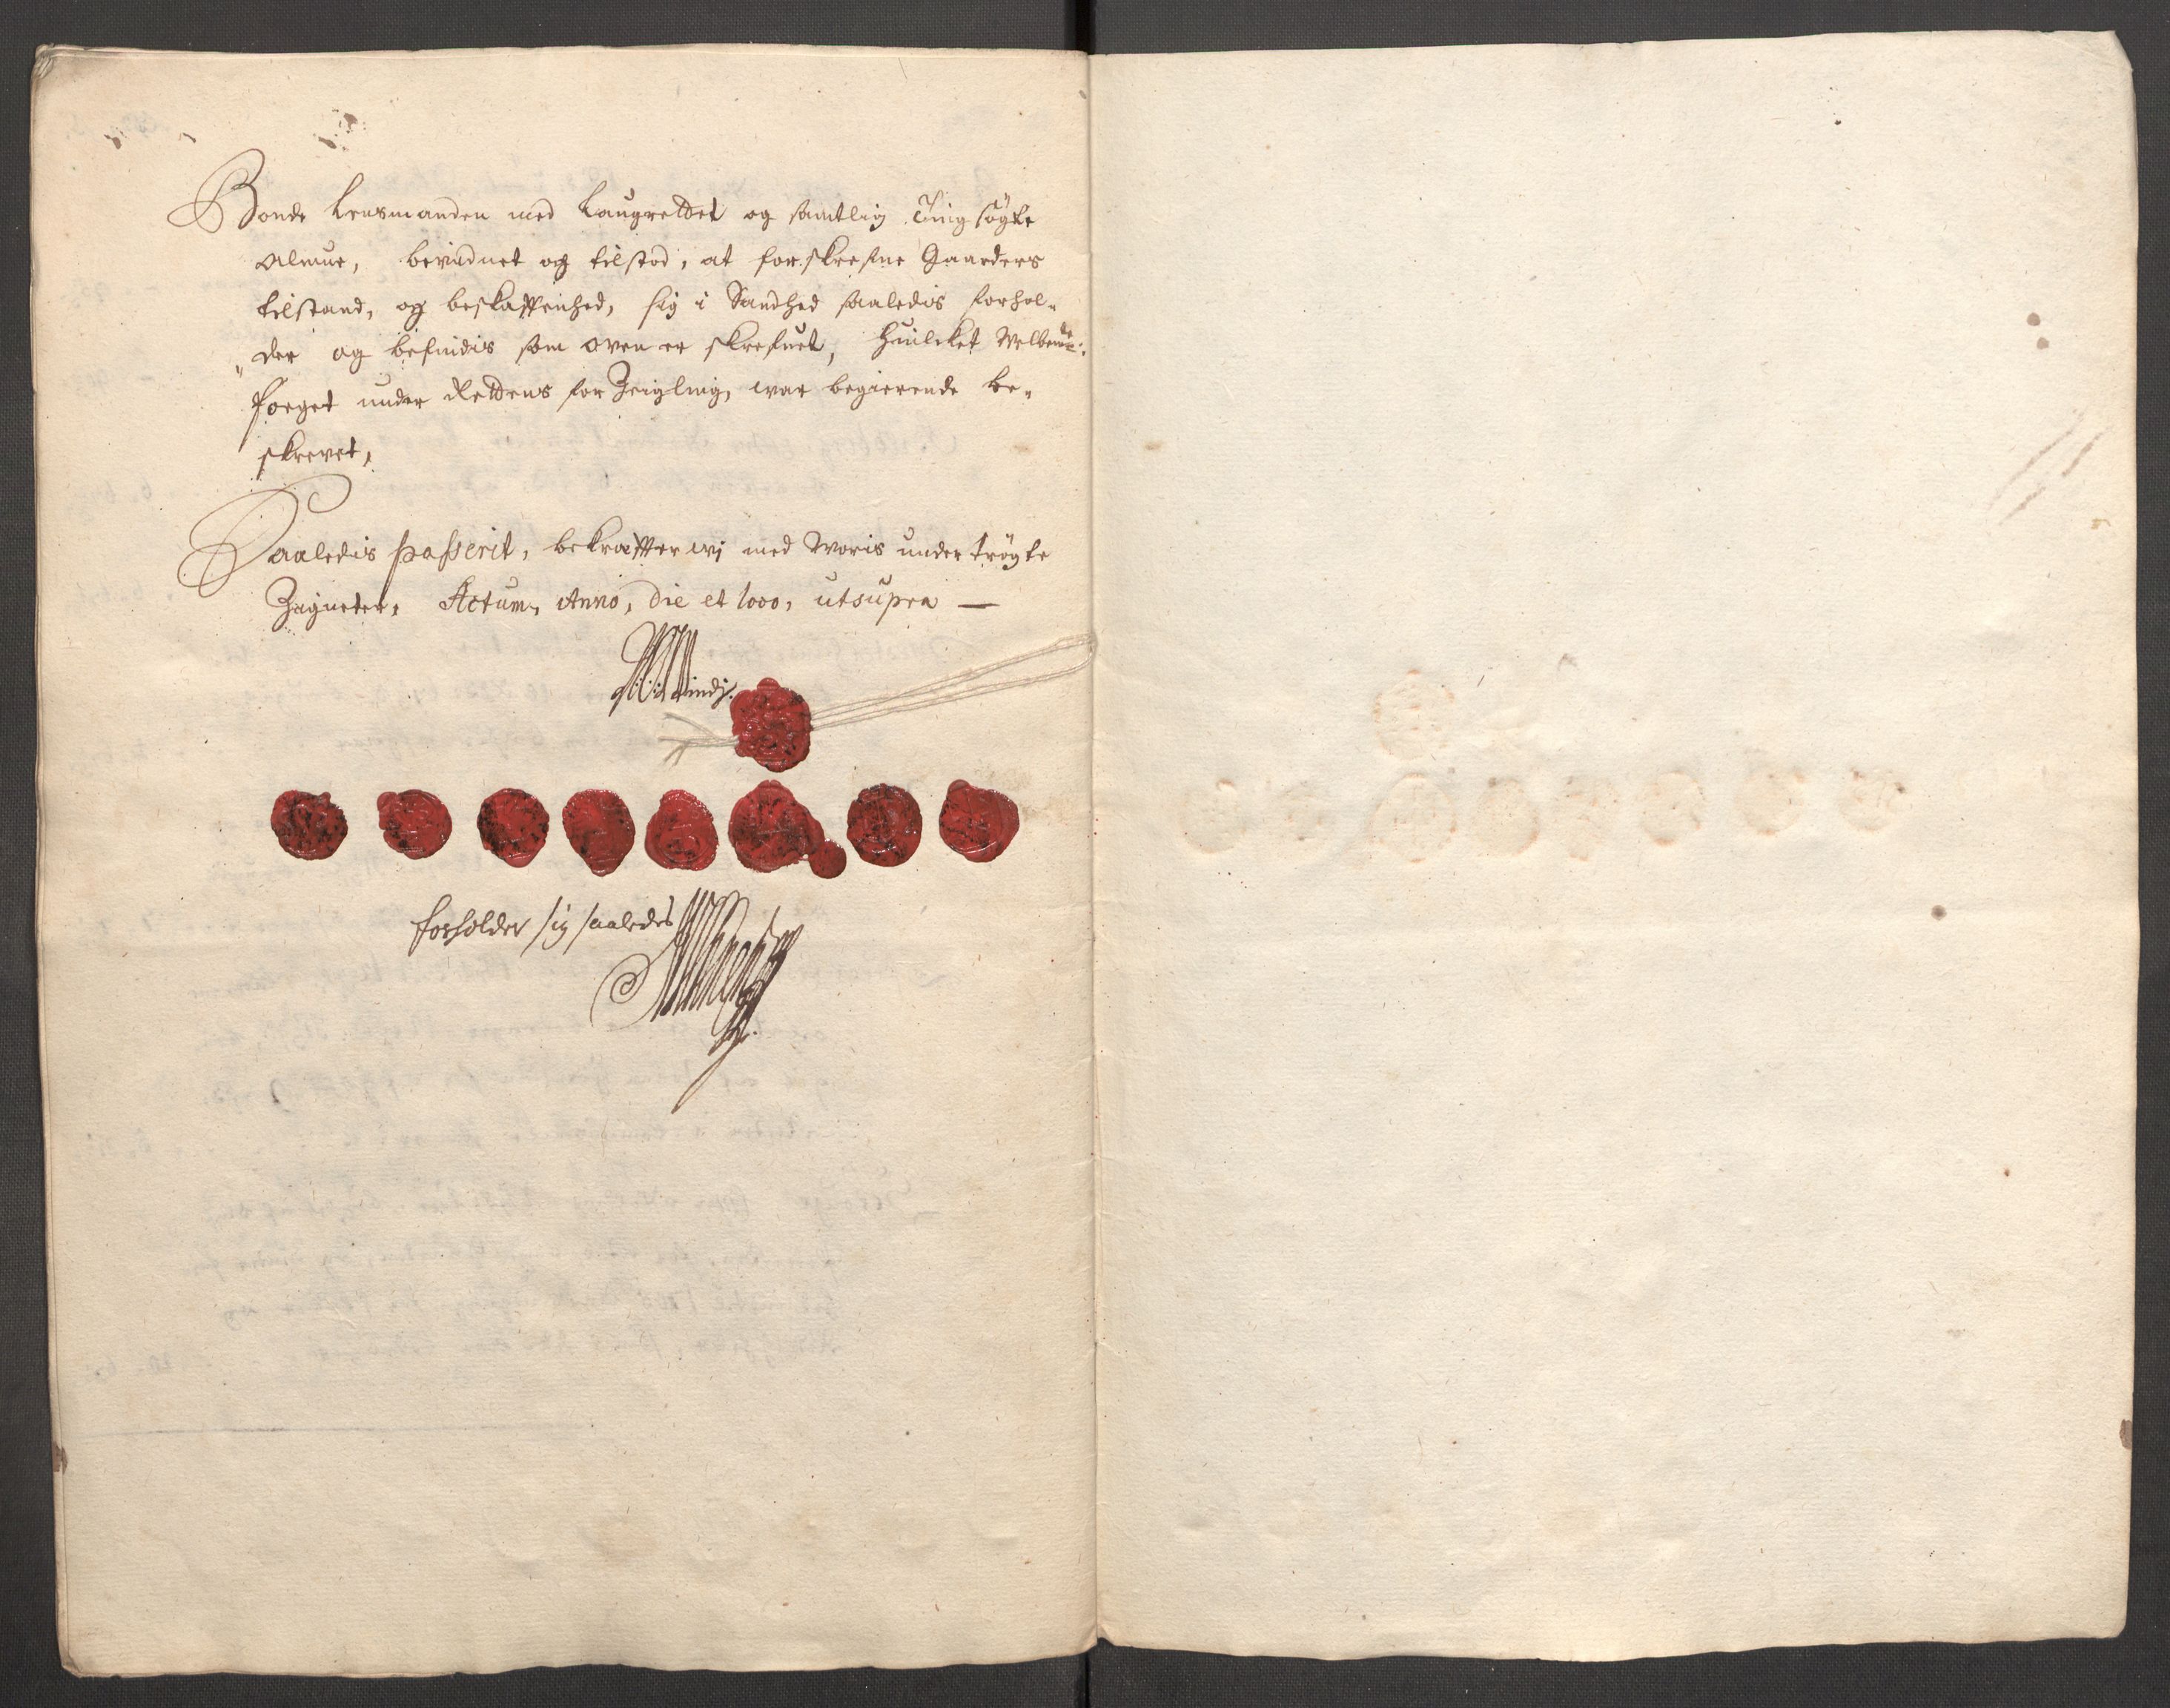 Bonde Lensmanden med Laugrettet og samtlig Ting søgte
Almue, bevidnet og tilstod, at for skrefne Gaarders
tilstand, og beskaffenhed, sig i Sandhed saaledis forhol-
der og befindis som oven er skrefuet, Huilcket Welbemte:
foeget under Rettens for Zeigling, war begierende be-
skrevet,
Saaledis passerit, bekræffter wj med woris under trøgte
Zigneter, Actum, Anno, die et loco, ut supra —
Windj.
forholder sig saaledes